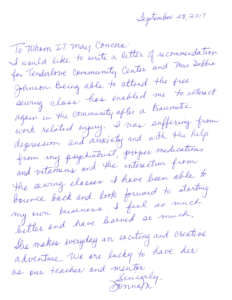 September 28, 2017
To Whom IT May Concern
I would like to write a letter of recommendation
for Tenderlove Community Center and Mrs Debbie
Johnson Being able to attend the free
sewing class has enabled me to interact
again in the community after a traumatic
work related injury. I was suffering from
depression and anxiety and with the help
from my psychiatrist, proper medications
and vitamins and the interaction from
the sewing classes I have been able to
bounce back and look forward to starting
my own business I feel so much
better and have learned so much,
She makes everyday an exciting and creative
adventure. We are lucky to have her
as our teacher and mentor.
Sincerely,
Donna